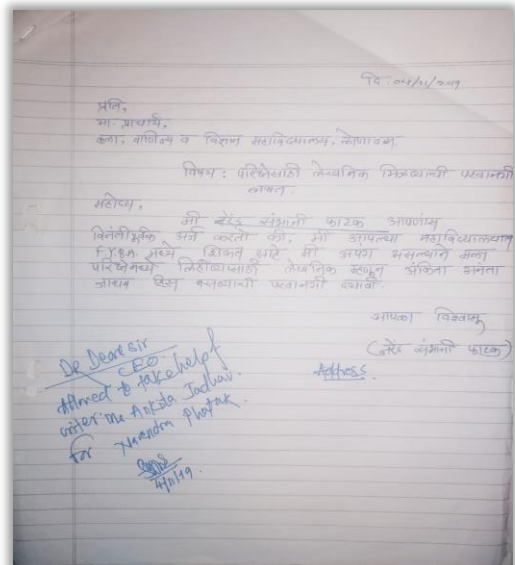 दि. ०४/११/२०१९
प्रति,
मा. प्राचार्य,
कला, वाणिज्य व विज्ञान महाविद्यालय, सोनावळ.
विषय : परीक्षेसाठी लेखनिक मिळव्याची परवानगी
बाबत.
महोदय,
मी नरेंद्र संभाजी फाटक आपणांस
विनंतीपूर्वक अर्ज करतो की, मी आपल्या महाविद्यालयात
मध्ये शिकत आहे मी अपंग असल्याने मला
परीक्षेमध्ये लिहीण्यासाठी लेखनिक म्हणून अंकिता
जाधव हिला बसव्याची परवानगी द्यावी.
आपला विश्वासू
(नरेंद्र संभाजी फाटक)
Address
Dear sir
CEO
Allowed to take help of
writer Ankita Jadhav
for Narendra Phatak.
4/11/19.